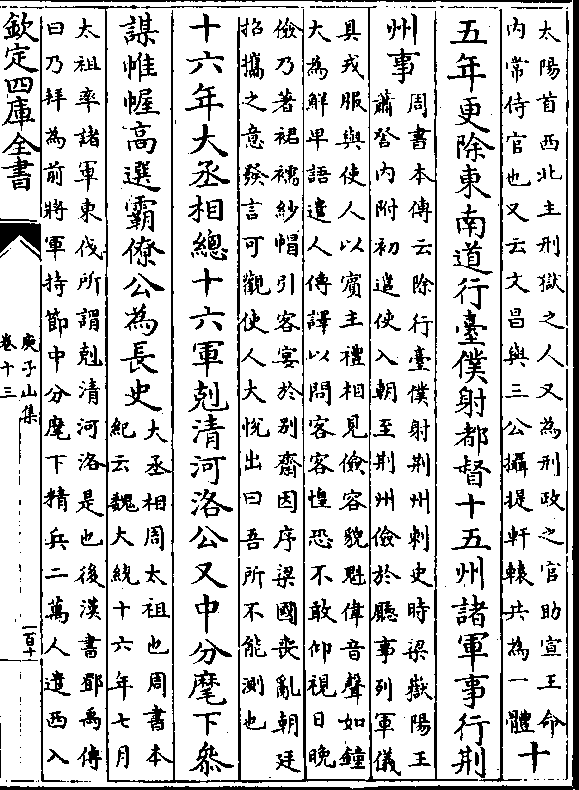 太陽首西北主刑獄之人又為刑政之官助宣王命
內常侍官也又云文昌與三公攝提軒轅共為一體
十
五年更除東南道行臺僕射都督十五州諸軍事行荆
州事
周書本傳云除行臺僕射荆州刺史時梁嶽陽王
蕭詧內附初遣使入朝至荆州儉於聽事列軍儀
具戎服與使人以賓主禮相見儉容貌魁偉音聲如鐘
大為鮮卑語遣人傳譯以問客客惶恐不敢仰視日晚
儉乃著裙襦紗帽引客宴於别齋因序梁國喪亂朝廷
招攜之意發言可觀使人大悅出曰吾所不能測也
十六年大丞相總十六軍剋清河洛公又中分麾下叅
謀帷幄高選霸僚公為長史
大丞相周太祖也周書本
紀云魏大統十六年七月
太祖率諸軍東伐所謂剋清河洛是也後漢書鄧禹傳
曰乃拜為前將軍持節中分麾下精兵二萬人遣西入
欽定四庫全書
庾子山集
卷十三
一百十